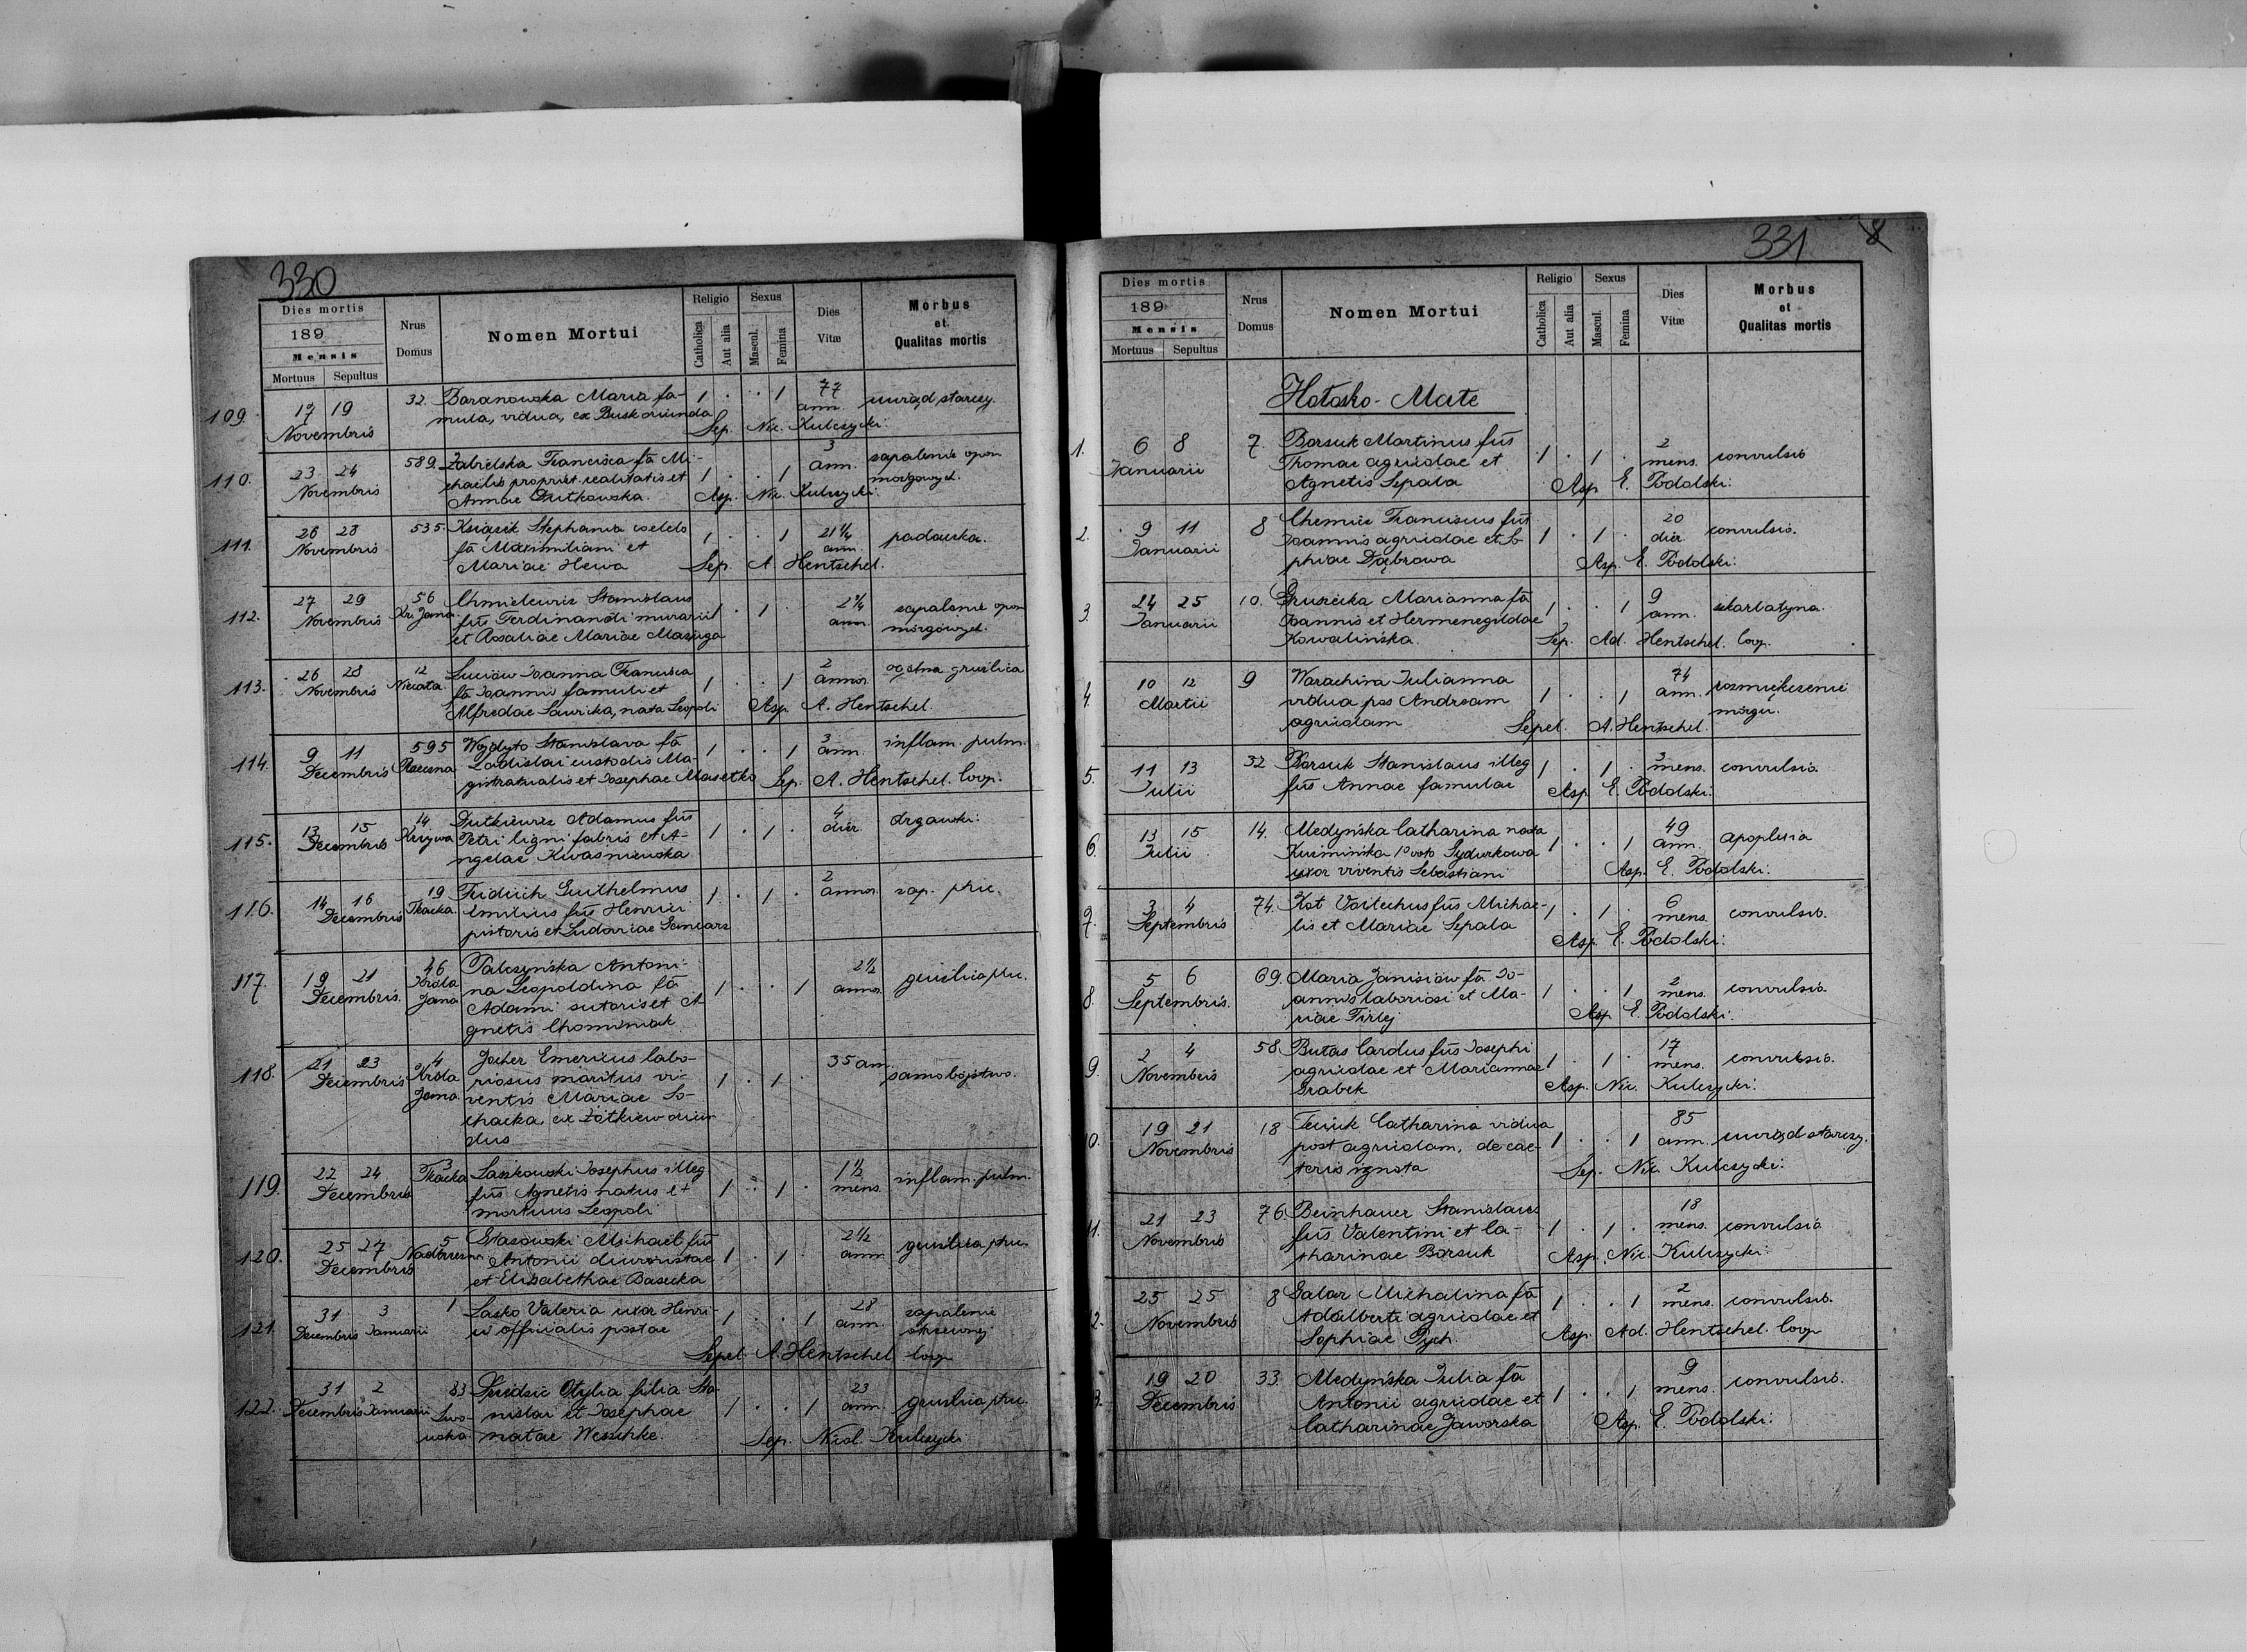 330
Dies mortis
189
Mensis
Mortuus Sepultus
Nrus Domus
Nomen Mortui
Religio
Catholica
Aut alia
Sexus
Mascul.
Femina
Dies Vitæ
Morbus et Qualitas mortis
109. 17 19 Novembris 32. Baranowska Maria fa- 1 . . 1 77 ann. uwiąd starczy.
mula, vidua, ex Busk oriunda
Sep. Nic. Kulczycki.
110. 23 24 Novembris 589. Zabielska Francisca fa Mi- 1 . . 1 3 ann. zapalenie opon
chaelis propriet. realitatis et mózgowych.
Annae Dutkowska. Asp. Nic. Kulczycki.
111. 26 28 Novembris 535. Książek Stephania coelebs 1 . . 1 21 1/4 ann. padaczka.
fa Maximiliani et
Mariae Hewa Sep. A. Hentschel.
112. 27 29 Novembris 56 Kr. Jana Chmielewicz Stanislaus 1 . 1 . 2 1/4 ann. zapalenie opon
fus Ferdinandi murarii mózgowych.
et Rosaliae Mariae Mazuga
113. 26 28 Novembris 12 Luciów Joanna Francisca 1 . . 1 2 annor. ogólna gruźlica
fa Joannis famuli et
Alfredae Sawicka, nata Leopoli Asp. A. Hentschel.
114. 9 11 Decembris 595 Wojdyło Stanislava fa 1 . . 1 3 ann. inflam. pulm.
Ladislai custodis Ma-
gistratualis et Josephae Masetko Sep. A. Hentschel. Coop.
115. 13 15 Decembris 14 Krzywa Dutkiewicz Adamus fus 1 . 1 . 4 dier. drgawki.
Petri ligni fabris et A-
ngelae Kwaśniewska
116. 14 16 Decembris 19 Tkacka. Fridrich Guilhelmus 1 . 1 . 2 annor. zap. płuc.
Emilius fus Henrici
pistoris et Ludovicae
117. 19 21 Decembris. 46 Króla Jana Palczyńska Antoni- 1 . . 1 2 1/2 annor. gruźlica płuc.
na Leopoldina fa
Adami sutoris et A
gnetis Chominiak
118. 21 23 Decembris 4 Króla Jana Jocher Emericus labo- 1 . 1 . 35 ann. samobójstwo.
riosus maritus vi-
ventis Mariae So-
chacka ex Żółkiew oriun
dus
119. 22 24 Decembris 3 Tkacka Laszkowski Josephus illeg 1 . 1 . 1 1/2 mens. inflam. pulm.
fus Agnetis natus et
mortuus Leopoli
120. 25 27 Decembris 5 Stasowski Michael fus 1 . 1 . 2 1/2 ann. gruźlica płuc.
Antonii
et Elisabethae
121. 31 Decembris 3 Januarii 1 Lasko Valeria uxor Henri- 1 . . 1 28 ann. zapalenie
ci officialis postae otrzewnej
Sepel. A. Hentschel coop
122. 31 Decembris 2 Januarii 33 Otylia filia Sta- 1 . . 1 23 ann. gruźlica płuc.
nislai et Josephae
natae Weschke. Sep. Nicol. Kulczycki
331
8
Dies mortis
189
Mensis
Mortuus Sepultus
Nrus Domus
Nomen Mortui
Religio
Catholica
Aut alia
Sexus
Mascul.
Femina
Dies Vitæ
Morbus et Qualitas mortis
Hołosko-Małe
1. 6 8 Januarii 7. Borsuk Martinus fus 1 . 1 . 2 mens. convulsio
Thomae agricolae et
Agnetis Sepala Asp E. Podolski.
2. 9 11 Januarii 8 Chemicz Franciscus fus 1 . 1 . 20 dier. convulsio.
Joannis agricolae et So-
phiae Dąbrowa Asp. E. Podolski.
3. 24 25 Januarii 10. Gruszecka Marianna fa 1 . . 1 9 ann. szkarlatyna.
Joannis et Hermenegildae
Kowalińska. Sep. Ad. Hentschel. Coop.
4. 10 12 Martii 9 Warachim Julianna 1 . . 1 74 ann. rozmiękczenie
vidua pos Andream mózgu.
agricolam Sepel. A. Hentschel.
5. 11 13 Julii 32 Borsuk Stanislaus illeg 1 . 1 . 3 mens. convulsio.
fus Annae famulae Asp E. Podolski.
6. 13 15 Julii 14. Medyńska Catharina nata 1 . . 1 49 ann. apoplexia
Kuźmińska 1o voto Sydurkowa
uxor viventis Sebastiani Asp. E. Podolski.
7. 3 4 Septembris 74. Kot Voitechus fus Michae- 1 . 1 . 6 mens. convulsio.
lis et Mariae Sepala Asp. E. Podolski.
8. 5 6 Septembris. 69. Maria Janisiów fa Jo- 1 . . 1 2 mens. convulsio.
annis laboriosi et Ma-
riae Tirlej Asp E. Podolski.
9. 2 4 Novembris 58. Butas Cardus fus Josephi 1 . 1 . 17 mens. convulsio.
agricolae et Mariannae
Grabek Asp. Nic. Kulczycki.
10. 19 21 Novembris 18 Catharina vidua 1 . . 1 85 ann. uwiąd starczy.
post agricolam, de cae-
teris ignota Sep. Nic. Kulczycki.
11. 21 23 Novembris 76. Beinhauer Stanislaus 1 . 1 . 18 mens. convulsio
fus Valentini et Ca-
tharinae Borsuk Asp. Nic. Kulczycki.
12. 25 25 Novembris 8 Galar Michalina fa 1 . . 1 2 mens. convulsio.
Adalberti agricolae et
Sophiae Pych. Asp. Ad. Hentschel. Coop
3. 19 20 Decembris 33. Medyńska Julia fa 1 . . 1 9 mens. convulsio.
Antonii agricolae et
Catharinae Jaworska Asp. E. Podolski.